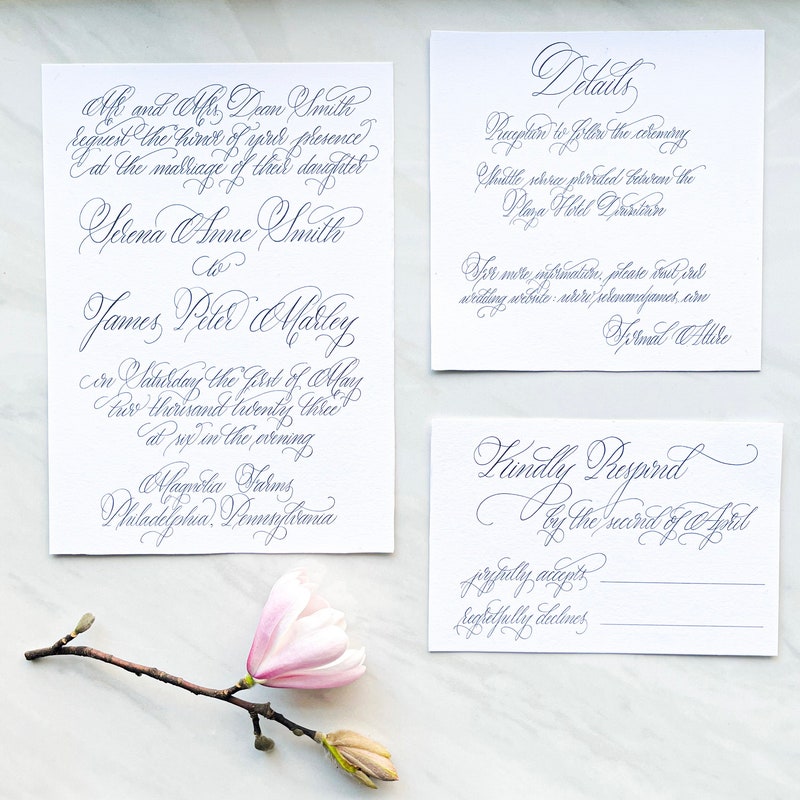 Mr and Mrs Dean Smith
request the honor of your presence
at the marriage of their daughter
Serena Anne Smith
to
James Peter Marley
on Saturday the first of May
two thousand twenty three
at six in the evening
Magnolia Farms
Philadelphia, Pennsylvania
Details
Reception to follow the ceremony
Shuttle service provided between the
Plaza Hotel Downtown
For more information, please visit our
wedding website: www.serenandjames.com
Formal Attire
Kindly Respond
by the second of April
joyfully accepts
regretfully declines